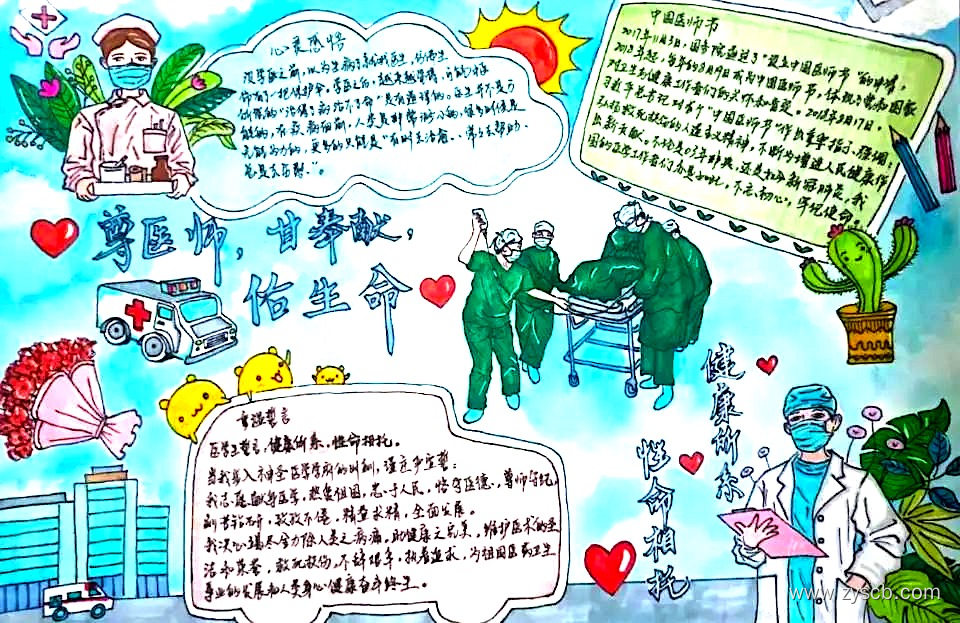 心灵感悟
没学医之前，以为生病了就找医生，仿佛生
命有了一把保护伞。学医之后，越来越懂得，
能的，在疾病面前，人类是非常渺小的，
总是去安慰"。
中国医师节
2017年11月3日，国务院通过了"设立中国医师节"的申请，
2018年起，每年的8月19日成为中国医师节，体现了党和国家
对卫生和健康工作者们的关怀和肯定。2018年8月17日，
习近平总书记对首个"中国医师节"作出重要指示强调：
弘扬救死扶伤的人道主义精神，不断为增进人民健康作
出新贡献。
国的医学工作者们，不忘初心，牢记使命
尊医师，甘奉献，
佑生命
重温誓言
医学生誓言，健康所系，性命相托。
当我步入神圣医学学府的时刻，谨庄严宣誓：
我志愿献身医学，热爱祖国，忠于人民，恪守医德，尊师守纪，
刻苦钻研，孜孜不倦，精益求精，全面发展。
我决心竭尽全力除人类之病痛，助健康之完美，维护医术的圣
洁和荣誉，救死扶伤，不辞艰辛，执着追求，为祖国医药卫生
事业的发展和人类身心健康奋斗终生。
健康所系
性命相托
www.zyscb.com